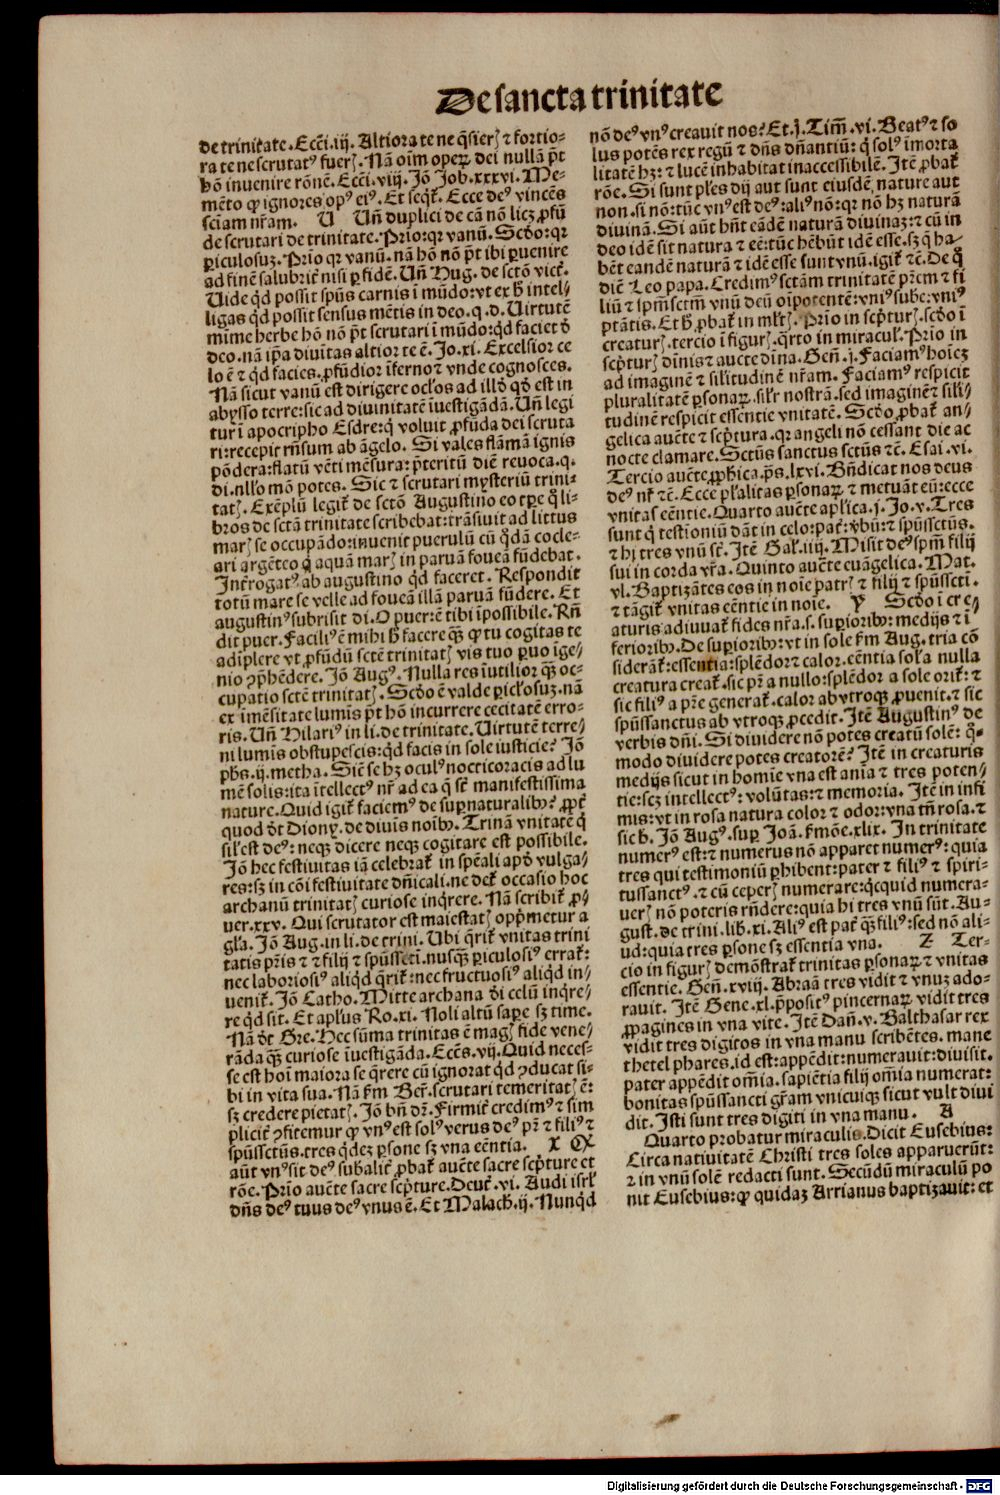 De sancta trinitate
de trinitate. Ecci̅. iij. Altiora te ne q̅sierꝭ ⁊ fortio-
ra te ne scrutatꝰ fuerꝭ. Nā oīm operꝝ dei nullā p̅t
hō invenire rōnē. Ecci̅. viij. Jō Job. xxxvi. Me-
mēto ꝙ ignores opꝰ eiꝰ. Et seqr̄. Ecce deꝰ vincēs
sciam nr̄am. V Un̄ duplici de cā nō licꝫ ꝓfū
de scrutari de trinitate. Prīo: qꝛ vanū. Scd̓o: qꝛ
ꝑiculosuꝫ. Prīo qꝛ vanū. nā hō nō p̅t ibi ꝑuenire
ad finē salubrit̄ nisi ꝑ fidē. Un̄ Hug. de sctō vict̄.
Vide qd̓ possit spūs carnis ī mūdo: vt ex hͦ intel-
ligas qd̓ possit sensus mētis in deo. q. d. Virtutē
mīme herbe hō nō p̅t scrutari ī mūdo: qd̓ faciet d̓
deo. nā ip̄a diuītas altior te ē. Jo. xi. Excelsior ce
lo ē ⁊ qd̓ facies. ꝓfūdior īferno ⁊ vnde cognosces.
Nā sicut vanū est dirigere oclōs ad illd̓ qd̓ est in
abysso terre: sic ad diuinitatē īuestigādā. Un̄ legi
tur ī apocripho Esdre: q̄ voluit ꝓfūda dei scruta
ri: recepit rn̄sum ab āgelo. Si vales flāmā ignis
pōdera: flatū vēti mēsura: p̄teritū diē reuoca. q.
di. nll̓o mō potes. Sic ⁊ scrutari mysteriū trini-
tatꝭ. Exēplū legit̄ de sctō Augustino eo tꝑe q̄ li-
bros de sctā trinitate scribebat: trāsiuit ad littus
marꝭ se occupādo: inuenit puerulū cū q̄dā cocle-
ari argēteo q̄ aquā marꝭ in paruā foueā fūdebat.
Int̄rogatꝰ ab augustino qd̓ faceret. Respondit
totū mare se velle ad foueā illā paruā fūdere. Et
augustinꝰ subrisit di. O puer: ē tibi īpossibile. Rn̄
dit puer. Faciliꝰ ē mihi hͦ facere qꝫ̄ ꝙ tu cogitas te
adīplere vt ꝓfūdū sctē trinitatꝭ vis tuo ꝑuo īge-
nio ꝯp̄hēdere. Jō Augꝰ. Nulla res īutilior qꝫ̄ oc-
cupatio sctē trinitatꝭ. Scd̓o ē valde ꝑicl̓osuꝫ. nā
ex īmēsitate lumīs p̅t hō incurrere cecitatē erro-
ris. Un̄ Hilariꝰ in li. de trinitate. Virtutē terre-
ni lumīs obstupescis: qd̓ facis in sole iusticie? Jō
ph̄s. ij. metha. Sic̄ se hꝫ oculꝰ nocticoracis ad lu
mē solis: ita ītellectꝰ nr̄ ad ea q̄ st̄ manifestissima
nature. Quid igit̄ faciemꝰ de suꝑnaturalibꝰ? ꝓpt̄
quod dt̄ Diony. de diuīs noībꝰ. Trinā vnitatē q̄
sil̓ est deꝰ: neqꝫ dicere neqꝫ cogitare est possibile.
Jō hec festiuitas iā celebrat̄ in spēali apd̓ vulga-
res: sꝫ in cōi festiuitate dn̄icali. ne det̄ occasio hoc
archanū trinitatꝭ curiose inq̄rere. Nā scribit̄ ꝓ-
uer. xxv. Qui scrutator est maiestatꝭ opp̄metur a
gl̓a. Jō Aug. in li. de trini. Ubi q̄rit̄ vnitas trini
tatis pr̄is ⁊ ⁊ filij ⁊ spūssctī. nusqꝫ̄ ꝑiculosiꝰ errat̄:
nec laboriosiꝰ aliqd̓ q̄rit̄: nec fructuosiꝰ aliqd̓ in-
uenit̄. Jō Catho. Mitte archana d̓i celū inq̄re-
re qd̓ sit. Et apl̓us Ro. xi. Noli altū saꝑe sꝫ time.
Nā dt̄ Gre. Hec sūma trinitas ē magꝭ fide vene-
rāda qꝫ̄ curiose īuestigāda. Ecc̄s. vij. Quid neces-
se est hoī maiora se q̄rere cū ignorat qd̓ ꝯducat si-
bi in vita sua. Nā fm̄ Ber̄. scrutari temeritatꝭ ē:
sꝫ credere pietatꝭ. Jō bn̄ dr̄. Firmit̄ credimꝰ ⁊ sim
plicit̄ ꝯfitemur ꝙ vnꝰ est solꝰ verus deꝰ pr̄ ⁊ filiꝰ ⁊
spūssctūs. tres q̄deꝫ ꝑsone sꝫ vna eēntia. X Qꝫ
aūt vnꝰ sit deꝰ subalit̄ ꝓbat̄ aucte̅ sacre scp̄ture et
rōe. Prīo aucte̅ sacre scp̄ture. Deut̄. vi. Audi isrl̓
dn̄s deꝰ tuus deꝰ vnus ē. Et Malach. ij. Nunqd̓
nō deꝰ vnꝰ creauit nos? Et. j. Tim̄. vi. Beatꝰ ⁊ so
lus potēs rex regū ⁊ dn̄s dn̄antiū: q̄ solꝰ īmorta
litatē hꝫ: ⁊ lucē inhabitat inaccessibilē. Jtē ꝓbat̄
rōe. Si sunt pl̓es dij aut sunt eiusdē nature aut
non. si nō: tūc vnꝰ est deꝰ: aliꝰ nō: qꝛ nō hꝫ naturā
diuinā. Si aūt hn̄t eādē naturā diuinaꝫ: ⁊ cū in
deo idē sit natura ⁊ eē: tūc hēbūt idē esse. sꝫ q̄ ha-
bēt eandē naturā ⁊ idē esse sunt vnū. igit̄ ⁊c̄. De q̄
diē Leo papa. Credimꝰ sctām trinitatē pr̄em ⁊ fi
liū ⁊ spm̄sctm̄ vnū deū oīpotentē: vniꝰ sube: vniꝰ
ptātis. Et hͦ ꝓbat̄ in mlt̄ꝭ. Prīo in scp̄turꝭ. scd̓o ī
creaturꝭ. tercio ī figurꝭ. q̄rto in miracul̓. Prīo in
scp̄turꝭ dīnis ⁊ aucte dīna. Gen̄. j. Faciamꝰ hoīeꝫ
ad imaginē ⁊ sil̓itudinē nr̄am. Faciamꝰ respicit
pluralitatē ꝑsonaꝝ. sil̓r nostrā. sed imaginē ⁊ sili-
tudinē respicit essentie vnitatē. Scd̓o ꝓbat̄ an-
gelica aucte̅ ⁊ scp̄tura. qꝛ angeli nō cessant die ac
nocte clamare. Sctūs sanctus sctūs ⁊c̄. Esai. vi.
Tercio aucte̅ ꝓph̄ica. ps̄. lxvi. Bn̄dicat nos deus
deꝰ nr̄ ⁊c̄. Ecce pl̓alitas ꝑsonaꝝ ⁊ metuāt eū: ecce
vnitas eēntie. Quarto aucte̅ apl̓ica. j. Jo. v. Tres
sunt q̄ testīoniū dāt in celo: pat̄: vbū: ⁊ spūssctūs.
⁊ hi tres vnū st̄. Jtē Gal̓. iiij. Misit deꝰ spm̄ filij
sui in corda vr̄a. Quinto aucte̅ euāgelica. Mat.
vl. Baptizātes eos in noīe patrꝭ ⁊ filij ⁊ spūssctī.
⁊ tāgit̄ vnitas eēntie in noīe. Y Scd̓o ī cre-
aturis adiuuat̄ fides nr̄a. s. suꝑioribꝰ: medijs ⁊ ī
ferioribꝰ. De suꝑioribꝰ: vt in sole fm̄ Aug. tria cō
siderāt̄: essentia: splēdor ⁊ calor. eēntia sol̓a nulla
creatura creat̄. sic pr̄ a nullo: splēdor a sole orit̄: ⁊
sic filiꝰ a pr̄e generat̄. calor ab vtroqꝫ ꝓuenit. ⁊ sic
spūssanctus ab vtroqꝫ ꝓcedit. Jtē Augustinꝰ de
verbis dn̄i. Si diuidere nō potes creatū solē: q̄-
modo diuidere potes creatorē? Jtē in creaturis
medijs sicut in homīe vna est anīa ⁊ tres poten-
tie: scꝫ intellectꝰ: volūtas: ⁊ memoria. Jtē in infi
mis: vt in rosa natura color ⁊ odor: vna tn̄ rosa. ⁊
sic hͦ. Jō Augꝰ. suꝑ Joā. fm̄oe. xlix. In trinitate
numerꝰ est: ⁊ numerus nō apparet numerꝰ: quia
tres qui testimoniū ꝑhibent: pater ⁊ filiꝰ ⁊ spiri-
tussanctꝰ. ⁊ cū ceperꝭ numerare: q̄cquid numera-
uerꝭ nō poteris rn̄dere: quia hi tres vnū sūt. Au-
gust. de trini. lib. xi. Aliꝰ est pat̄ qꝫ̄ filiꝰ: sed nō ali-
ud: quia tres ꝑsone sꝫ essentia vna. Z Ter-
cio in figurꝭ demōstrat̄ trinitas ꝑsonaꝝ ⁊ vnitas
essentie. Gen̄. xviij. Abraā tres vidit ⁊ vnuꝫ ado-
rauit. Jtē Gene. xl. p̄positꝰ pincernaꝝ vidit tres
ꝓpagines in vna vite. Jtē Dan̄. v. Balthasar rex
vidit tres digitos in vna manu scribētes. mane
thetel phares. id est: appēdit: numerauit: diuisit.
pater appēdit om̄ia. sapiētia filij om̄ia numerat:
bonitas spūssancti gr̄am vnicuiqꝫ sicut vult diui
dit. Jsti sunt tres digiti in vna manu. A
Quarto probatur miraculis. Dicit Eusebius:
Circa natiuitatē Christi tres soles apparuerūt:
⁊ in vnū solē redacti sunt. Secūdū miraculū po
nit Eusebius: ꝙ quidaꝫ Arrianus baptizauit: et
Digitalisierung gefördert durch die Deutsche Forschungsgemeinschaft - DFG